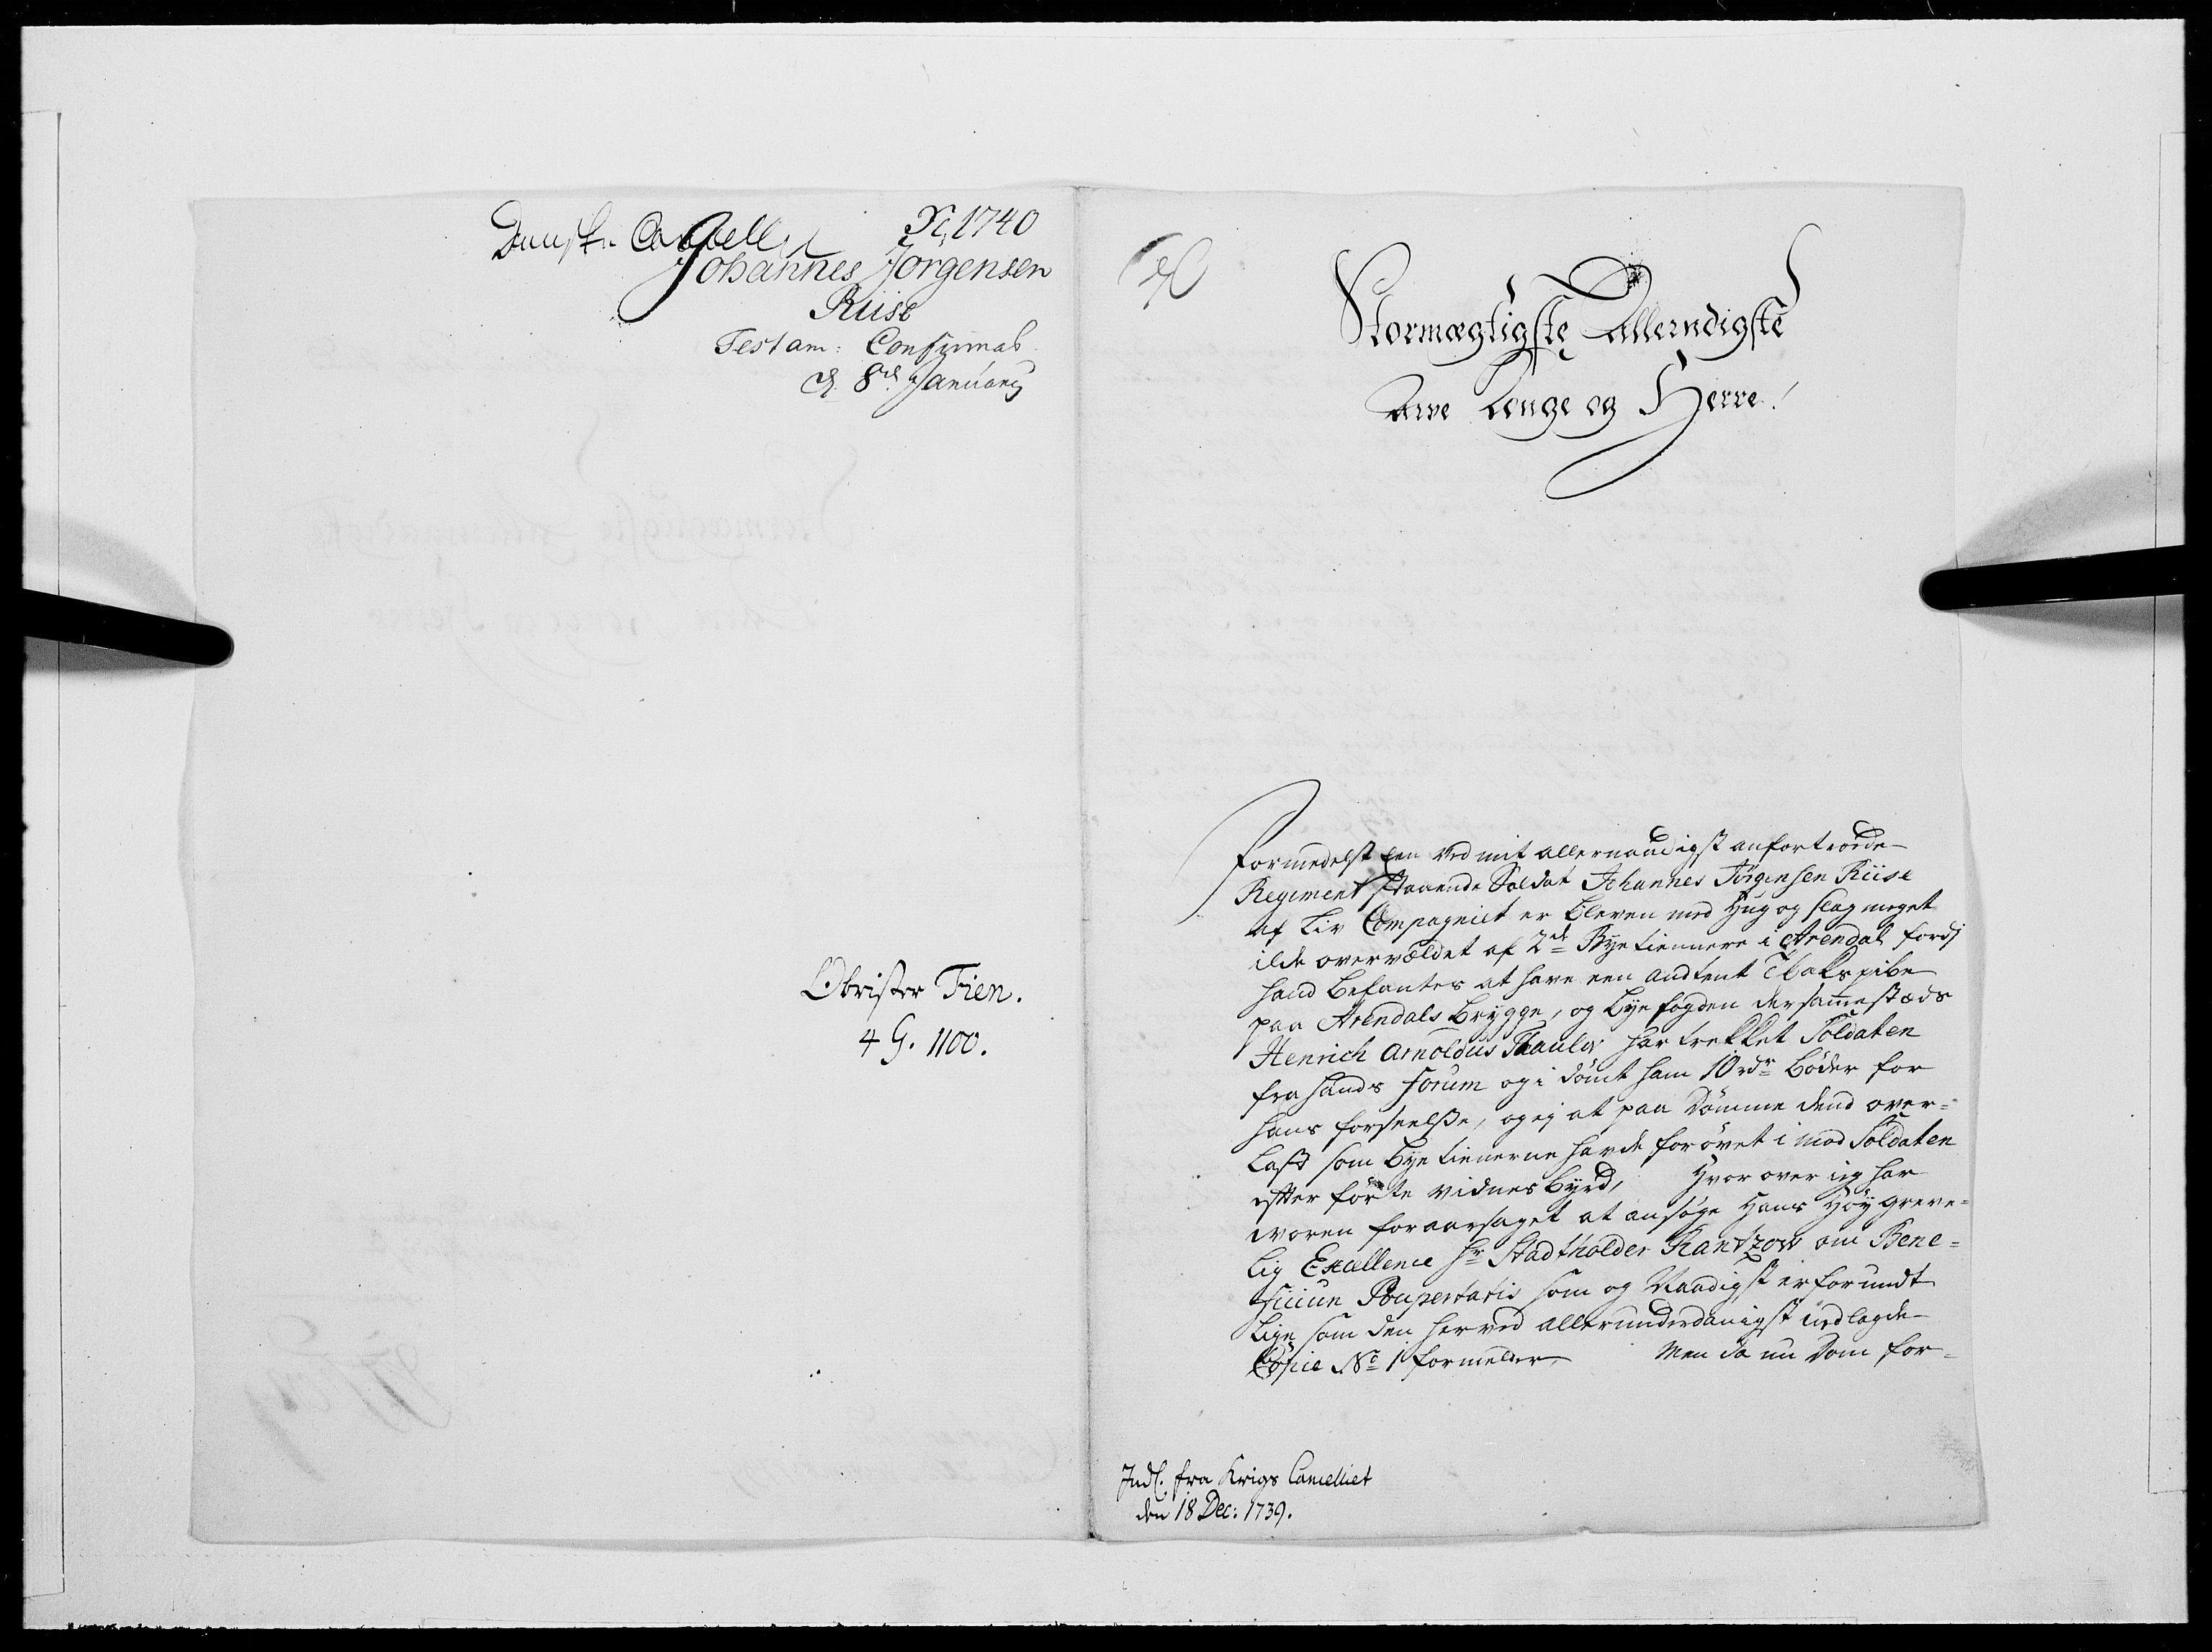 Dansk. Cancell.
N. 1740
Johannes Jörgensen
Riise
Testam: Confirmat
d. 8de January
Obrister Fien.
4 G. 1100.
Stormægtigste Allernådigste
Arve Konge og Herre!
Formedelst een ved mit allernaadigst anfortroede
Regiment staaende Soldat Johannes Jörgensen Riise
af Liv Compagniet er bleven med Hug og slag meget
ilde overvældet af 2de Byetiennere i Arendal fordj
hand befantes at have een andtent Tobakspibe
paa Arendals Brygge, og byefogden dersammestæds
Henrich Arnoldus Thaulov har trekket Soldaten
fra hands Forum og i dömt ham 10 rdr böder for
hans forseelße, og ej at paa dömme dend over=
last som byetienerne havde forövet i mod Soldaten
efter förte vidnesbyrd, Hvor over ieg har
voren foraarsaget at ansöge Hans Höygreve=
lig Excellence Hr Stadtholder Rantzow om Bene=
ficium Paupertatis som og Naadigst er forundt
lige som den herved allerunderdanigst indlagde
Copie No 1 formelder, Men da nu Dom for=
Indl. fra Krigs Cancelliet
den 18 Dec: 1739.